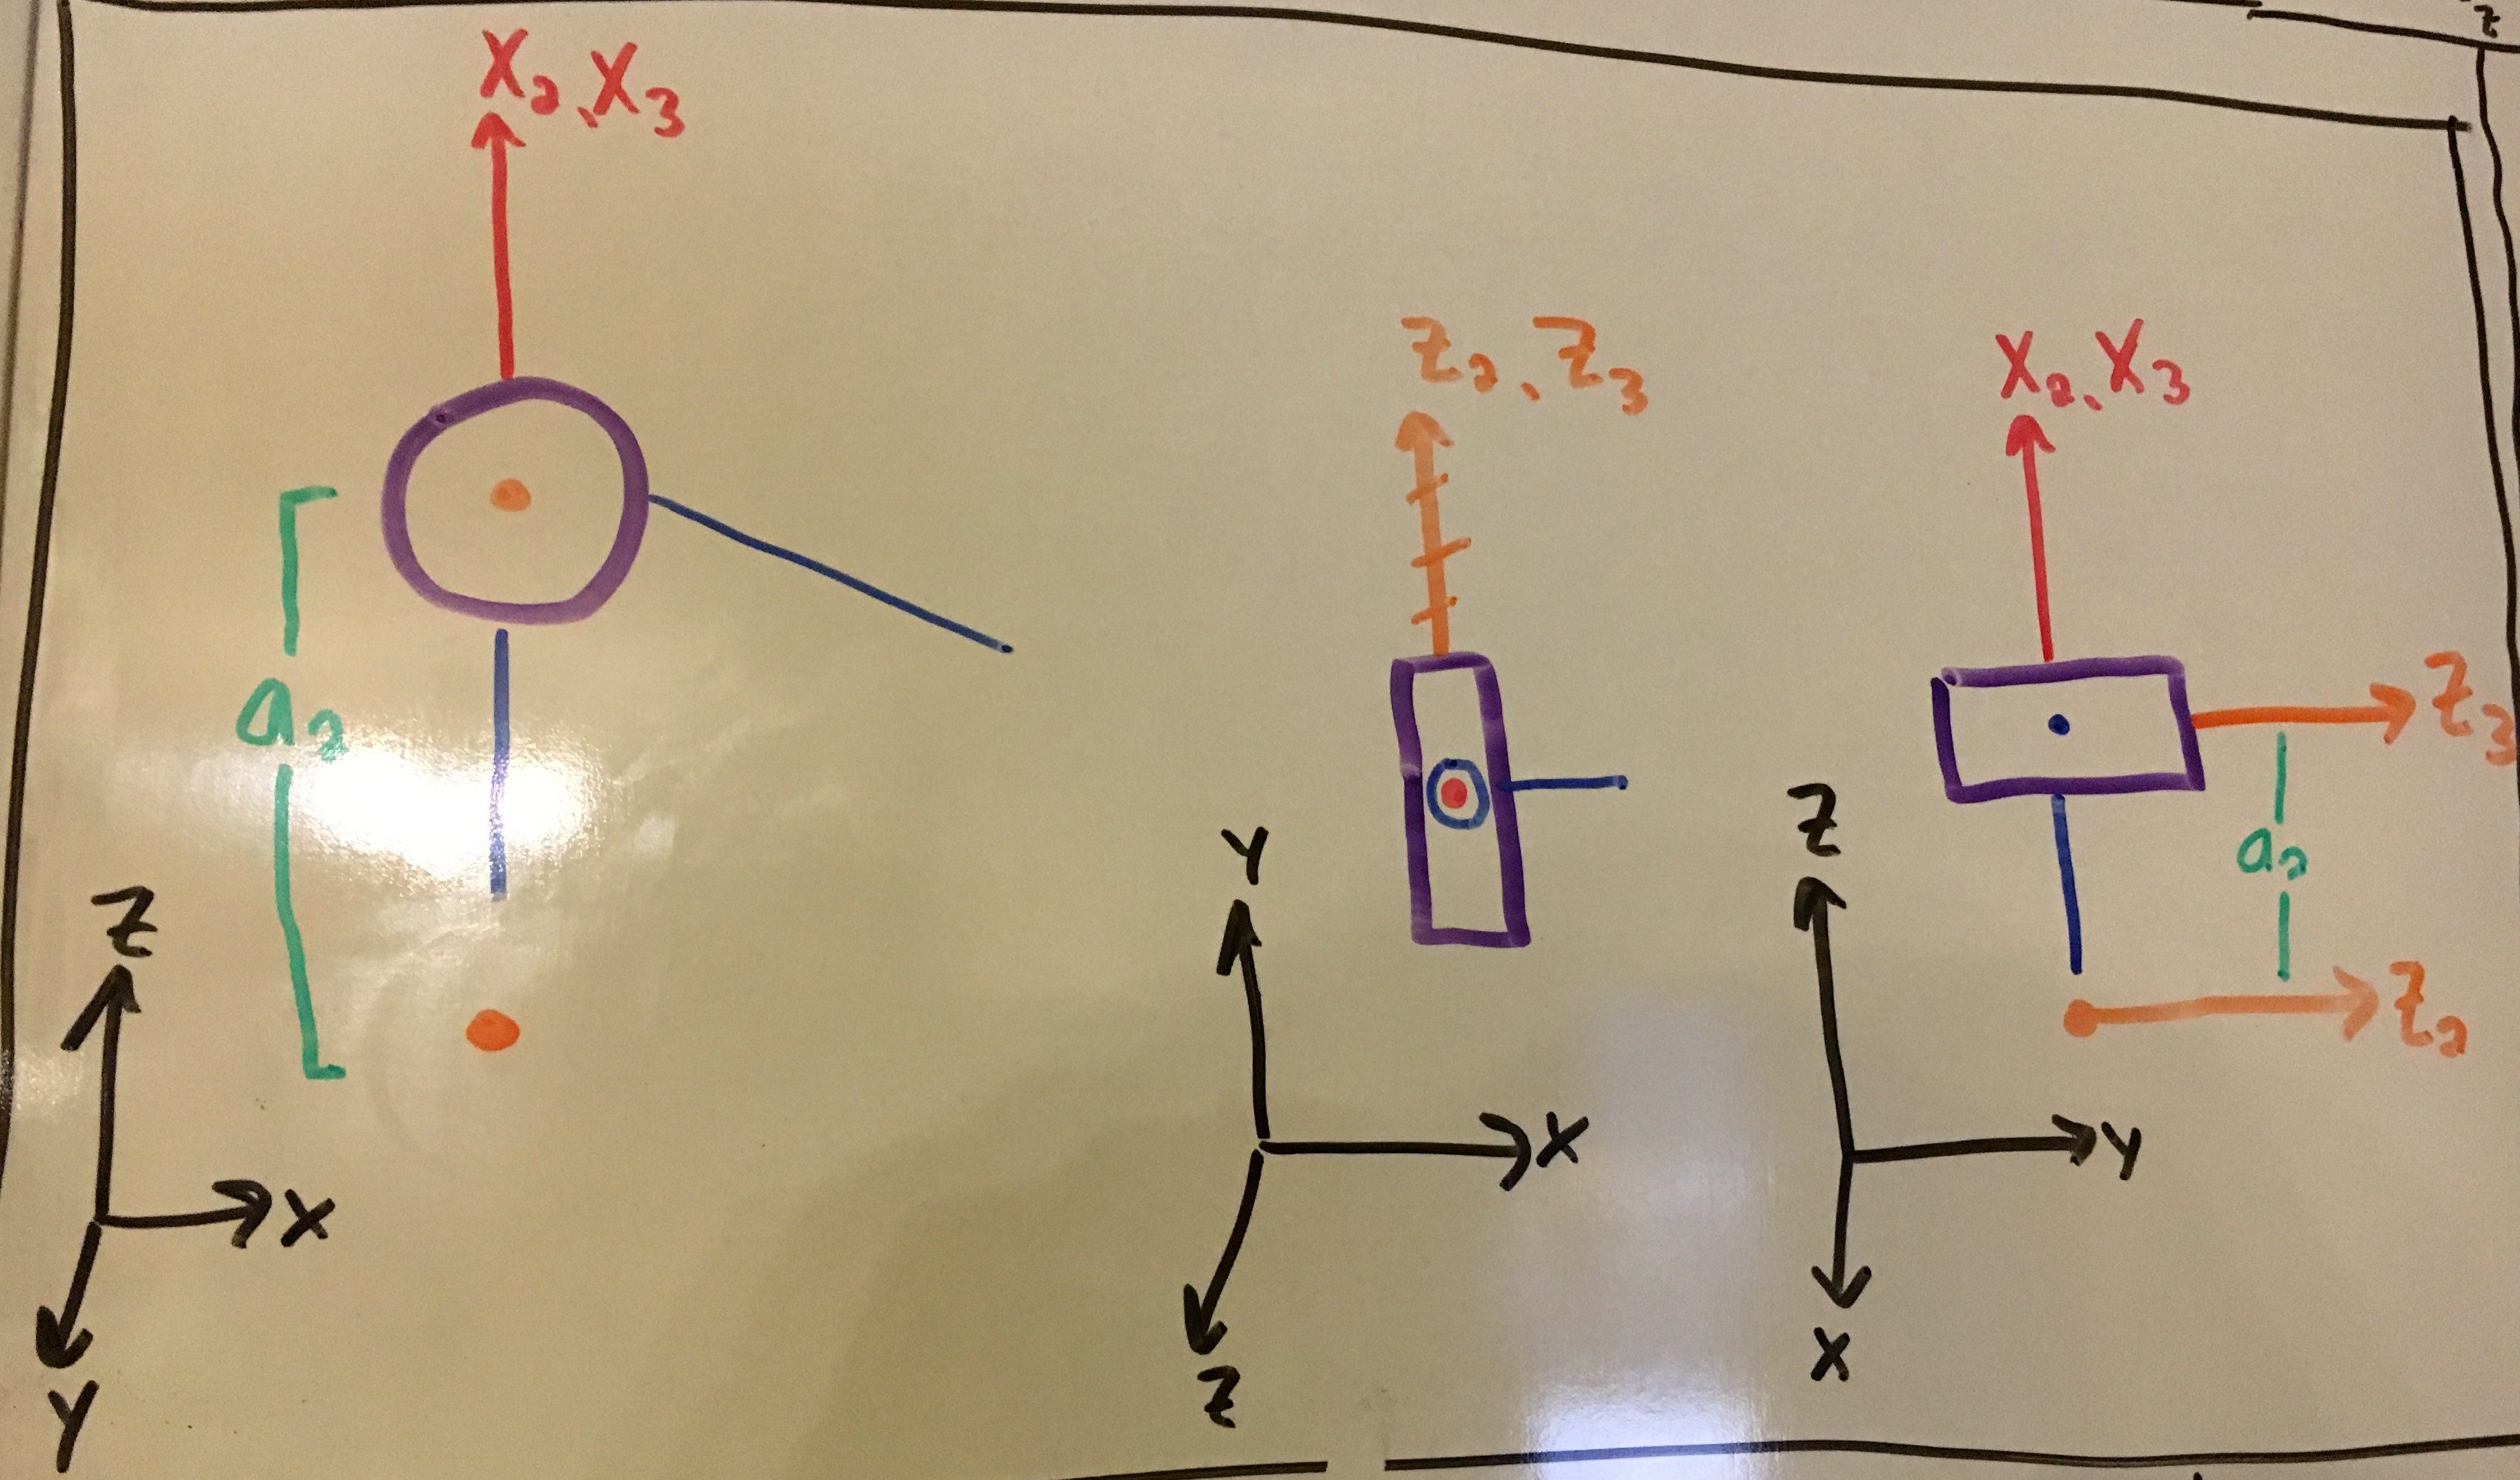 z
X₂, X₃
a₂
Z
X
Y
Z₂, Z₃
Y
X
Z
X₂, X₃
Z₃
a₂
Z₂
Z
Y
X